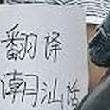 翻译
潮汕话